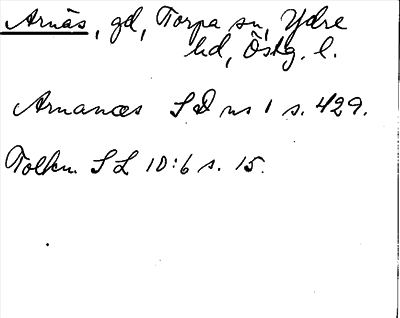 Arnäs, gd, Torpa sn, Ydre
hd, Östg. l.
Arnanæs SD ns 1 s. 429.
Tolkn. SL 10:6 s. 15.